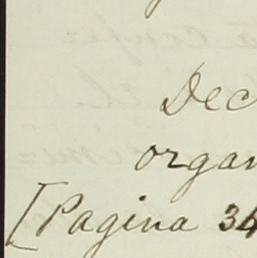 Dec
organ
[Pagina 34